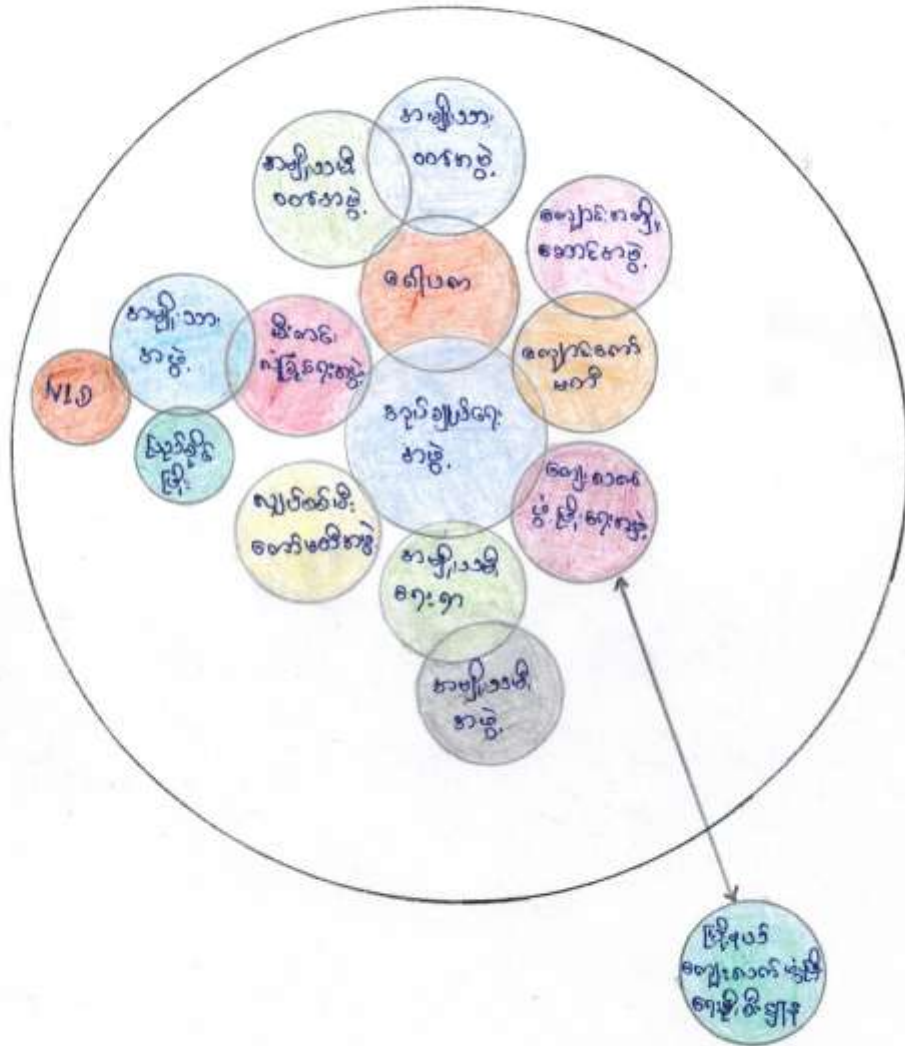 အမျိုးသား
ဝတ်အဖွဲ့
အမျိုးသမီး
ဝတ်အဖွဲ့
ဂေါပက
ကျောင်းအကျိုး
ဆောင်အဖွဲ့
ကျောင်းကော်
မတီ
အမျိုးသား
အဖွဲ့
မီးဘေး
လုံခြုံရေးအဖွဲ့
NLD
ပြည်ခိုင်
ဖြိုး
အုပ်ချုပ်ရေး
အဖွဲ့
ကျေးလက်
ဖွံ့ဖြိုးရေးအဖွဲ့
လျှပ်စစ်မီး
ကော်မတီအဖွဲ့
အမျိုးသမီး
ရေးရာ
အမျိုးသမီး
အဖွဲ့
မြို့နယ်
ကျေးလက်ဖွံ့ဖြိုး
ရေးဦးစီးဌာန